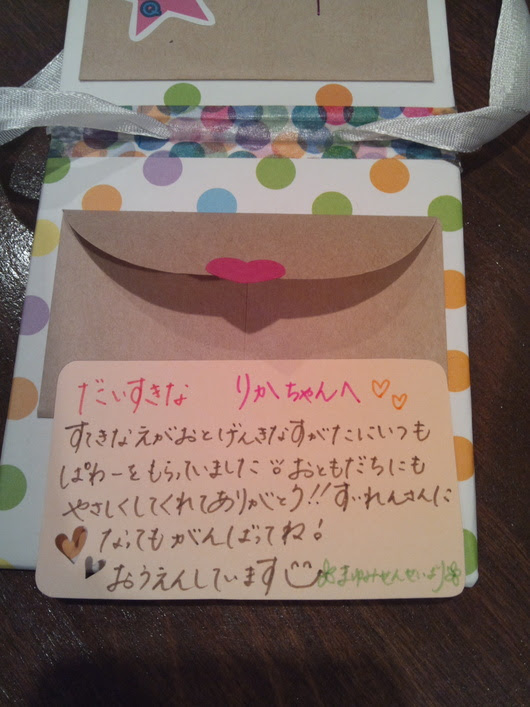 だいすきな りかちゃんへ
すてきなえがおとげんきなすがたにいつも
ぱわーをもらっていました おともだちにも
やさしくしてくれてありがとう!! すいれんさんに
なってもがんばってね!
おうえんしています まゆみせんせいより